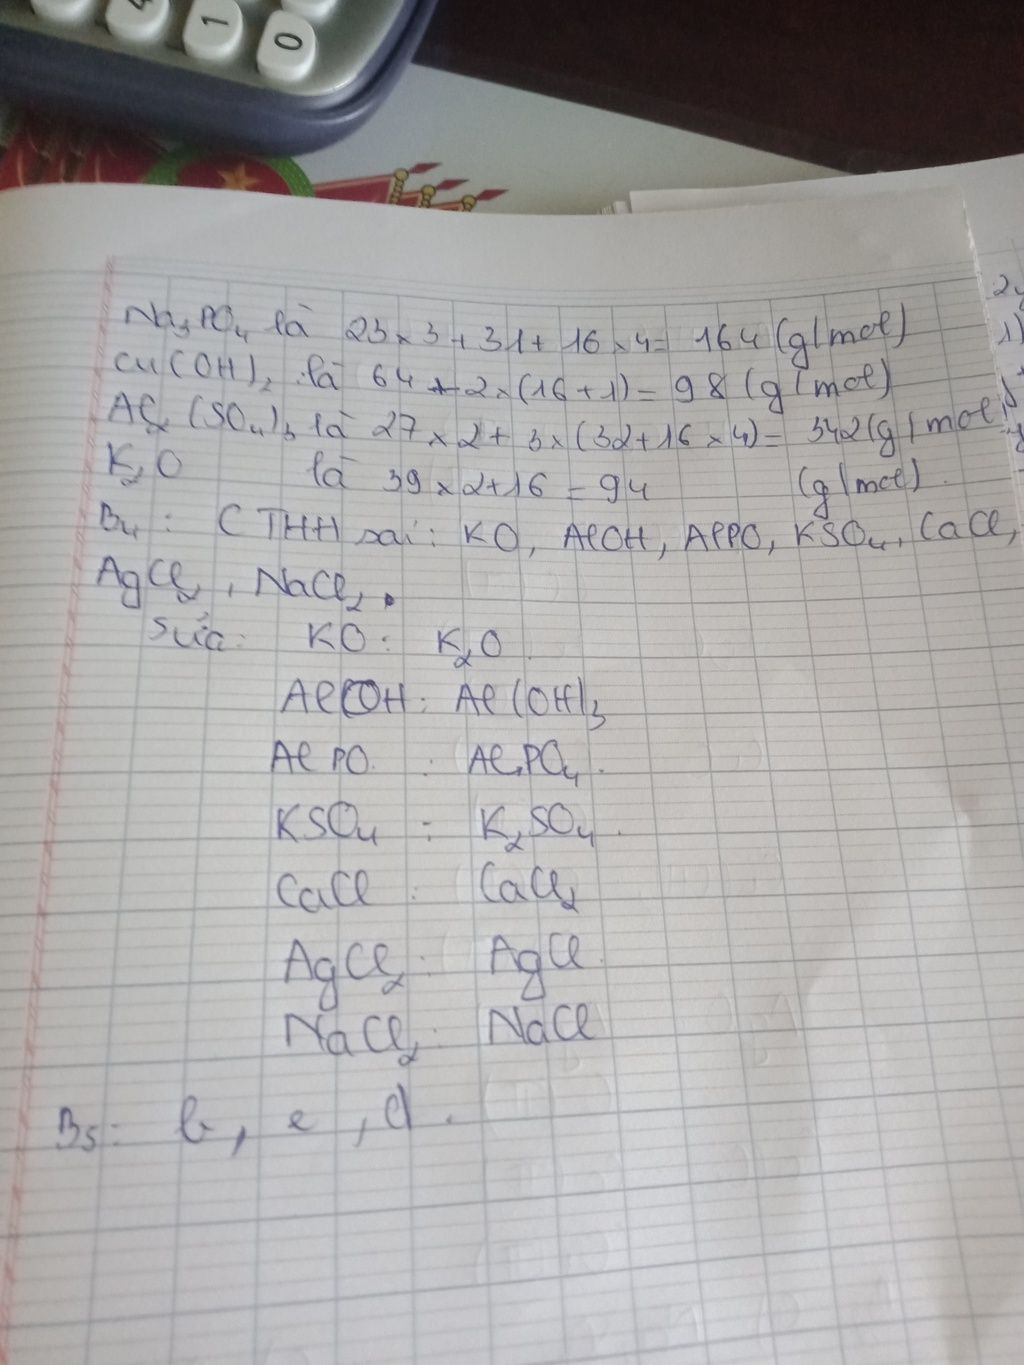 1
0
Na₃PO₄ là 23 x 3 + 31 + 16 x 4 = 164 (g/mol)
Cu(OH)₂ là 64 + 2 x (16 + 1) = 98 (g/mol)
Al₂(SO₄)₃ là 27 x 2 + 3 x (32 + 16 x 4) = 342 (g/mol)
K₂O là 39 x 2 + 16 = 94 (g/mol).
B4: CTHH sai: KO, AlOH, AlPO, KSO₄, CaCl,
AgCl₂, NaCl₂.
Sửa: KO: K₂O
AlOH: Al(OH)₃
AlPO : AlPO₄.
KSO₄ : K₂SO₄.
CaCl : CaCl₂
AgCl₂: AgCl.
NaCl₂: NaCl
B5: b, e, d.